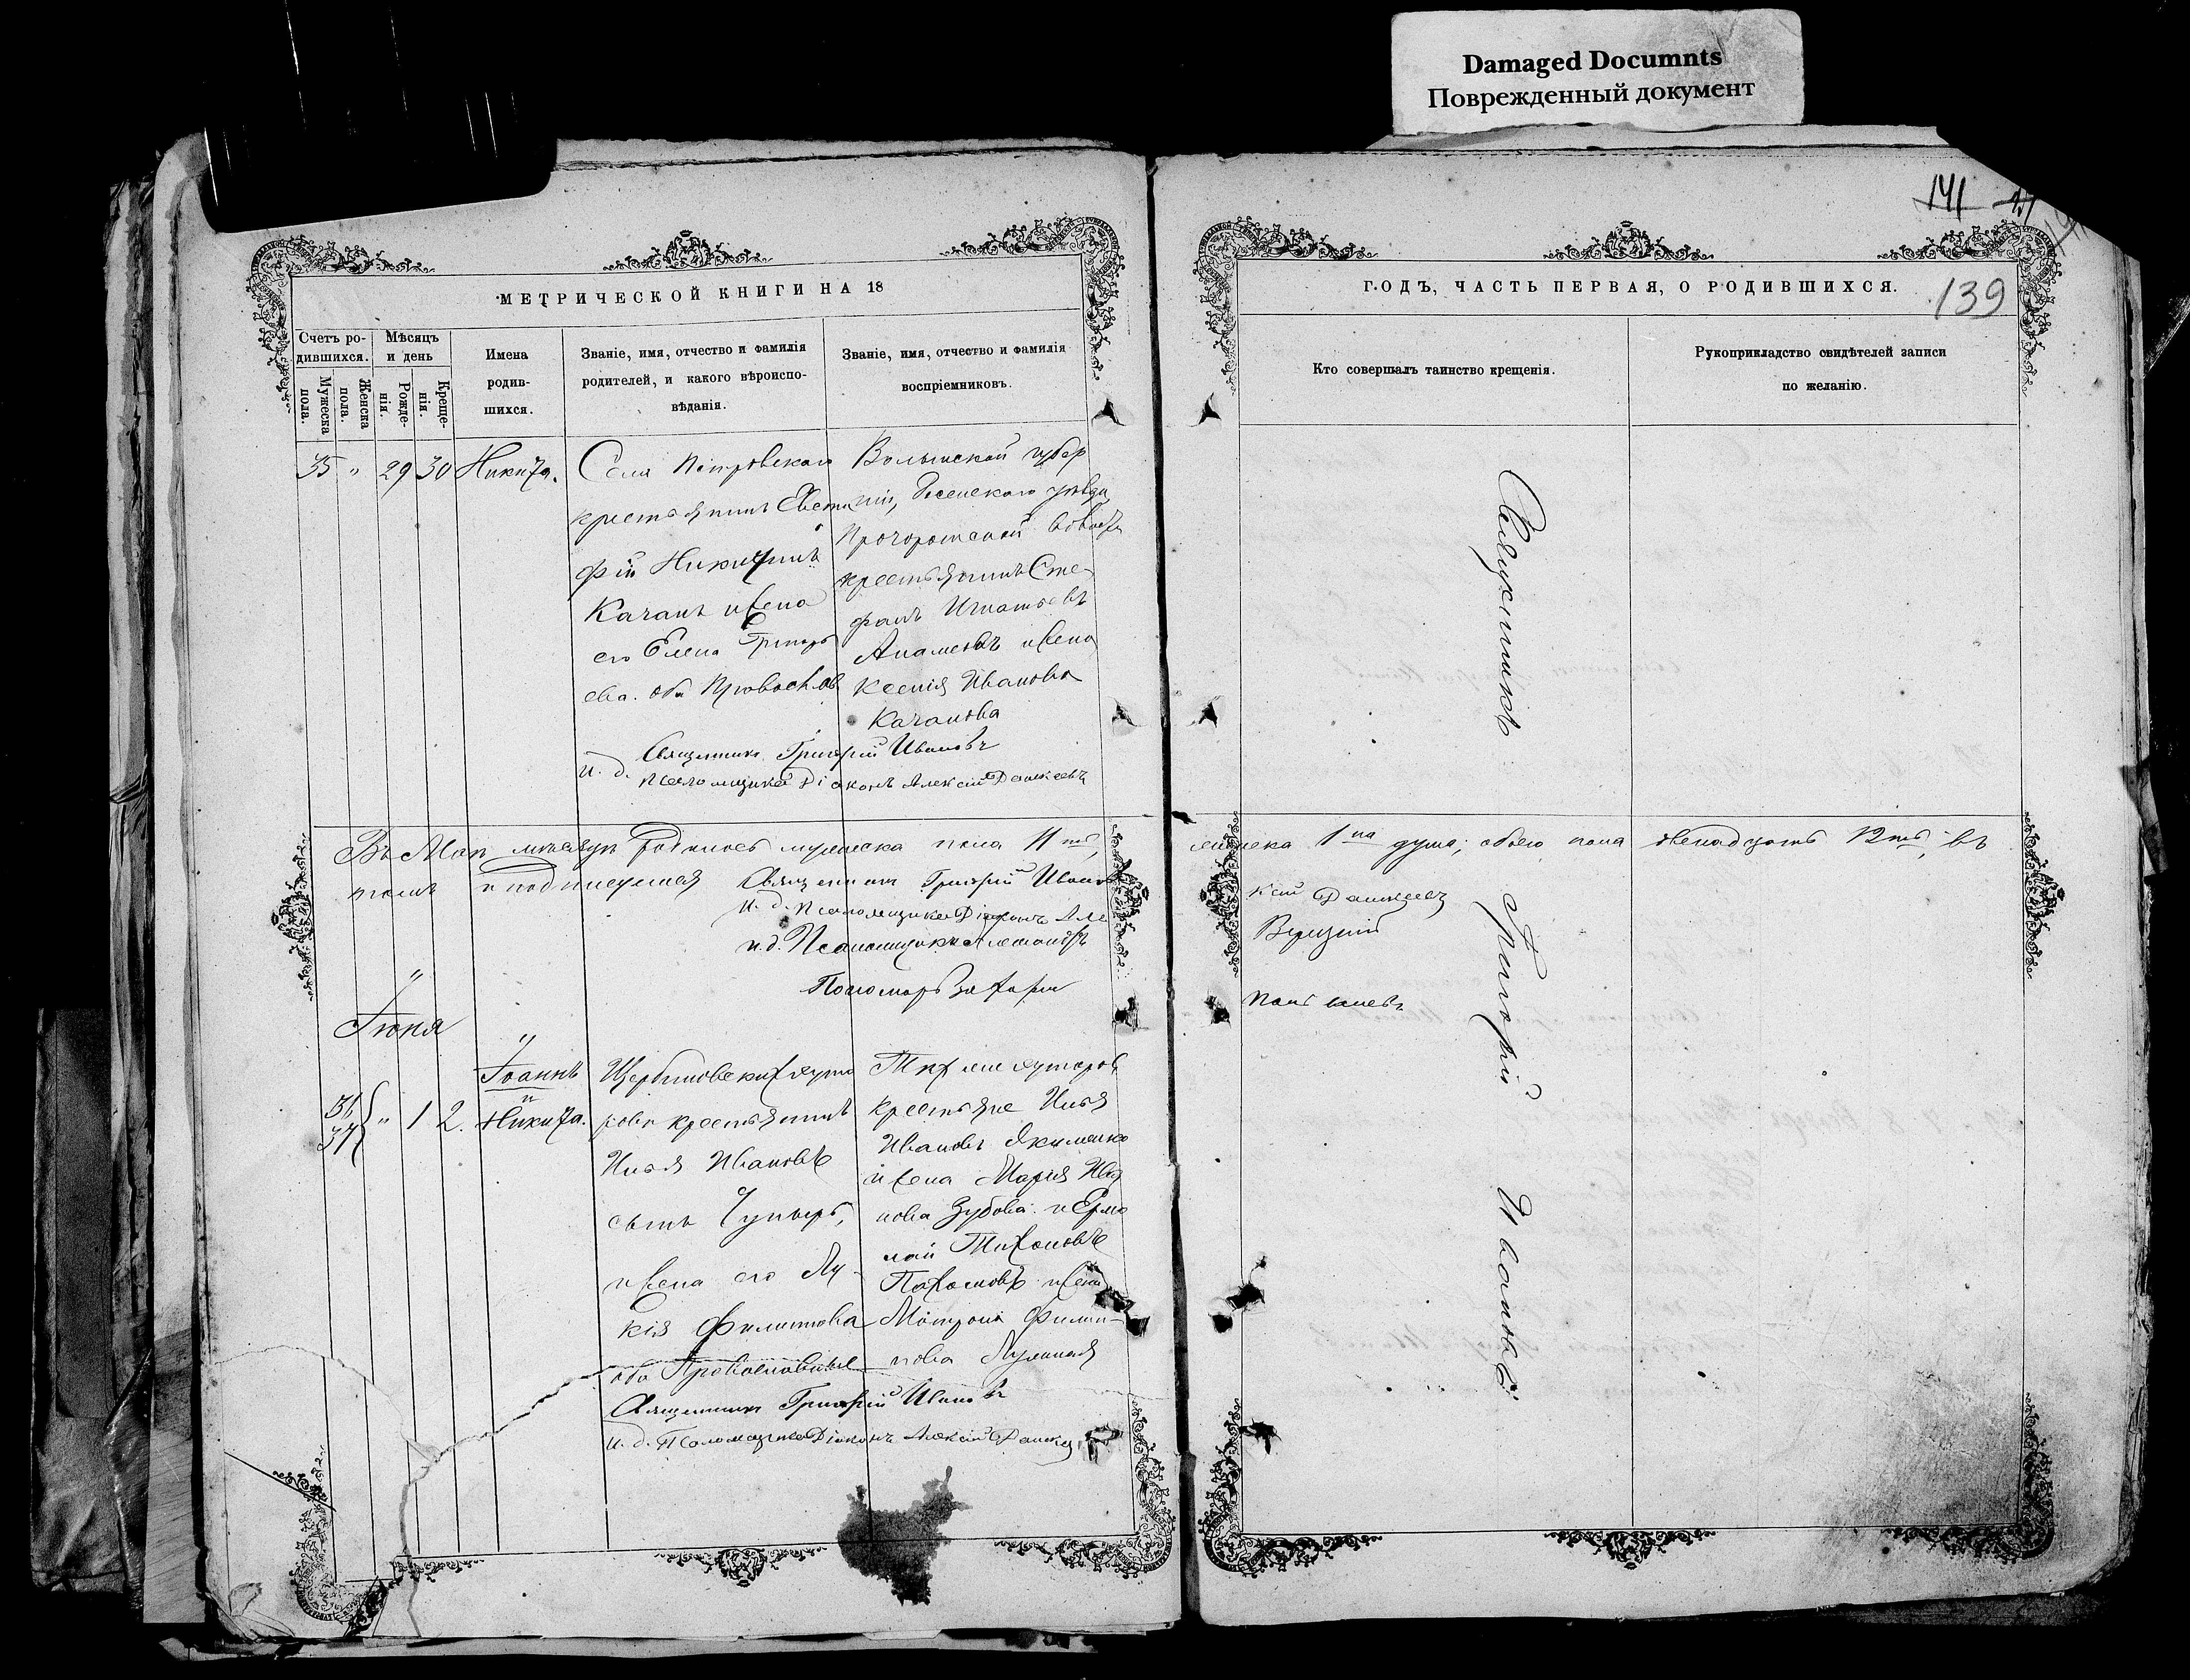 Damaged Documnts
Поврежденный документ
141
139
МЕТРИЧЕСКОЙ КНИГИ НА 18
Счетъ ро-
дившихся.
Мужеска
пола.
Женска
пола.
Мѣсяцъ
и день
Рожде-
нія.
Креще-
нія.
Имена
родив-
шихся.
Званіе, имя, отчество и фамилія
родителей, и какого вѣроиспо-
вѣданія.
Званіе, имя, отчество и фамилія
воспріемниковъ.
35 " 29 30 Никита.
Села Петровскаго
крестьянинъ
фій Никитинъ
Качанъ и жена
его Елена Григорь
ева. оба Православ
Волынской губер
ніи, уѣзда
волости
крестьянинъ Сте-
фанъ Игнатьевъ
и жена
Ксенія Иванова
Качанова
Священникъ Григорій Ивановъ
и. д. псаломщика Діаконъ Алексій
Въ Маѣ мѣсяцѣ родилось мужеска пола 11ть,
томъ и подписуемся Священникъ Григорій Ивановъ
и. д. псаломщика Діаконъ Але
и. д. Псаломщика
Пономарь
Іюня
36
37 " 1 2.
Іоаннъ
и
Никита.
Щербиновскихъ хуто
ровъ крестьянинъ
Илья Ивановъ
сынъ Чупыръ,
и жена его Лу-
кія Филипова
оба Православные
Тѣхъ же хуторовъ
крестьяне Илья
Ивановъ Якименко
и жена Марія Ива
нова Зубова и Ермо
лай Тихоновъ
Пахомовъ и жена
Матрона Филип-
пова
Священникъ Григорій Ивановъ
и. д. Псаломщика Діаконъ Алексій
ГОДЪ, ЧАСТЬ ПЕРВАЯ, О РОДИВШИХСЯ.
Кто совершалъ таинство крещенія.
Рукоприкладство свидѣтелей записи
по желанію.
Священникъ
женска 1на душа; обоего пола двенадцать 12ть, въ
ксій
Григорій
Ивановъ